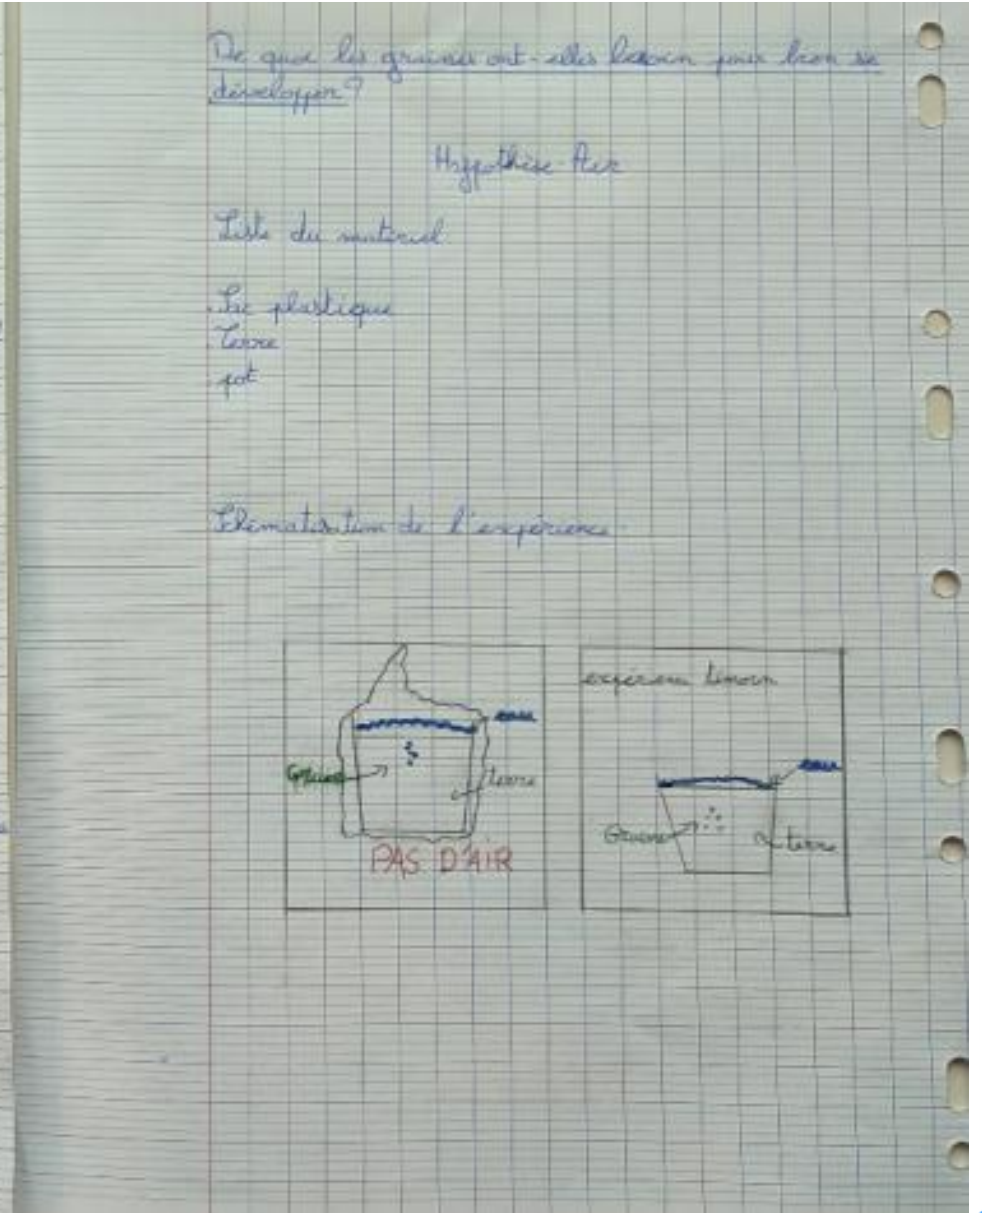 De quoi les graines ont-elles besoin pour bien se
développer?
Hypothèse Air
Liste du matériel
. Sac plastique
. Terre
. pot
Shématisation de l'expérience
eau
Graine
terre
PAS D'AIR
expérience témoin
eau
Graine
terre